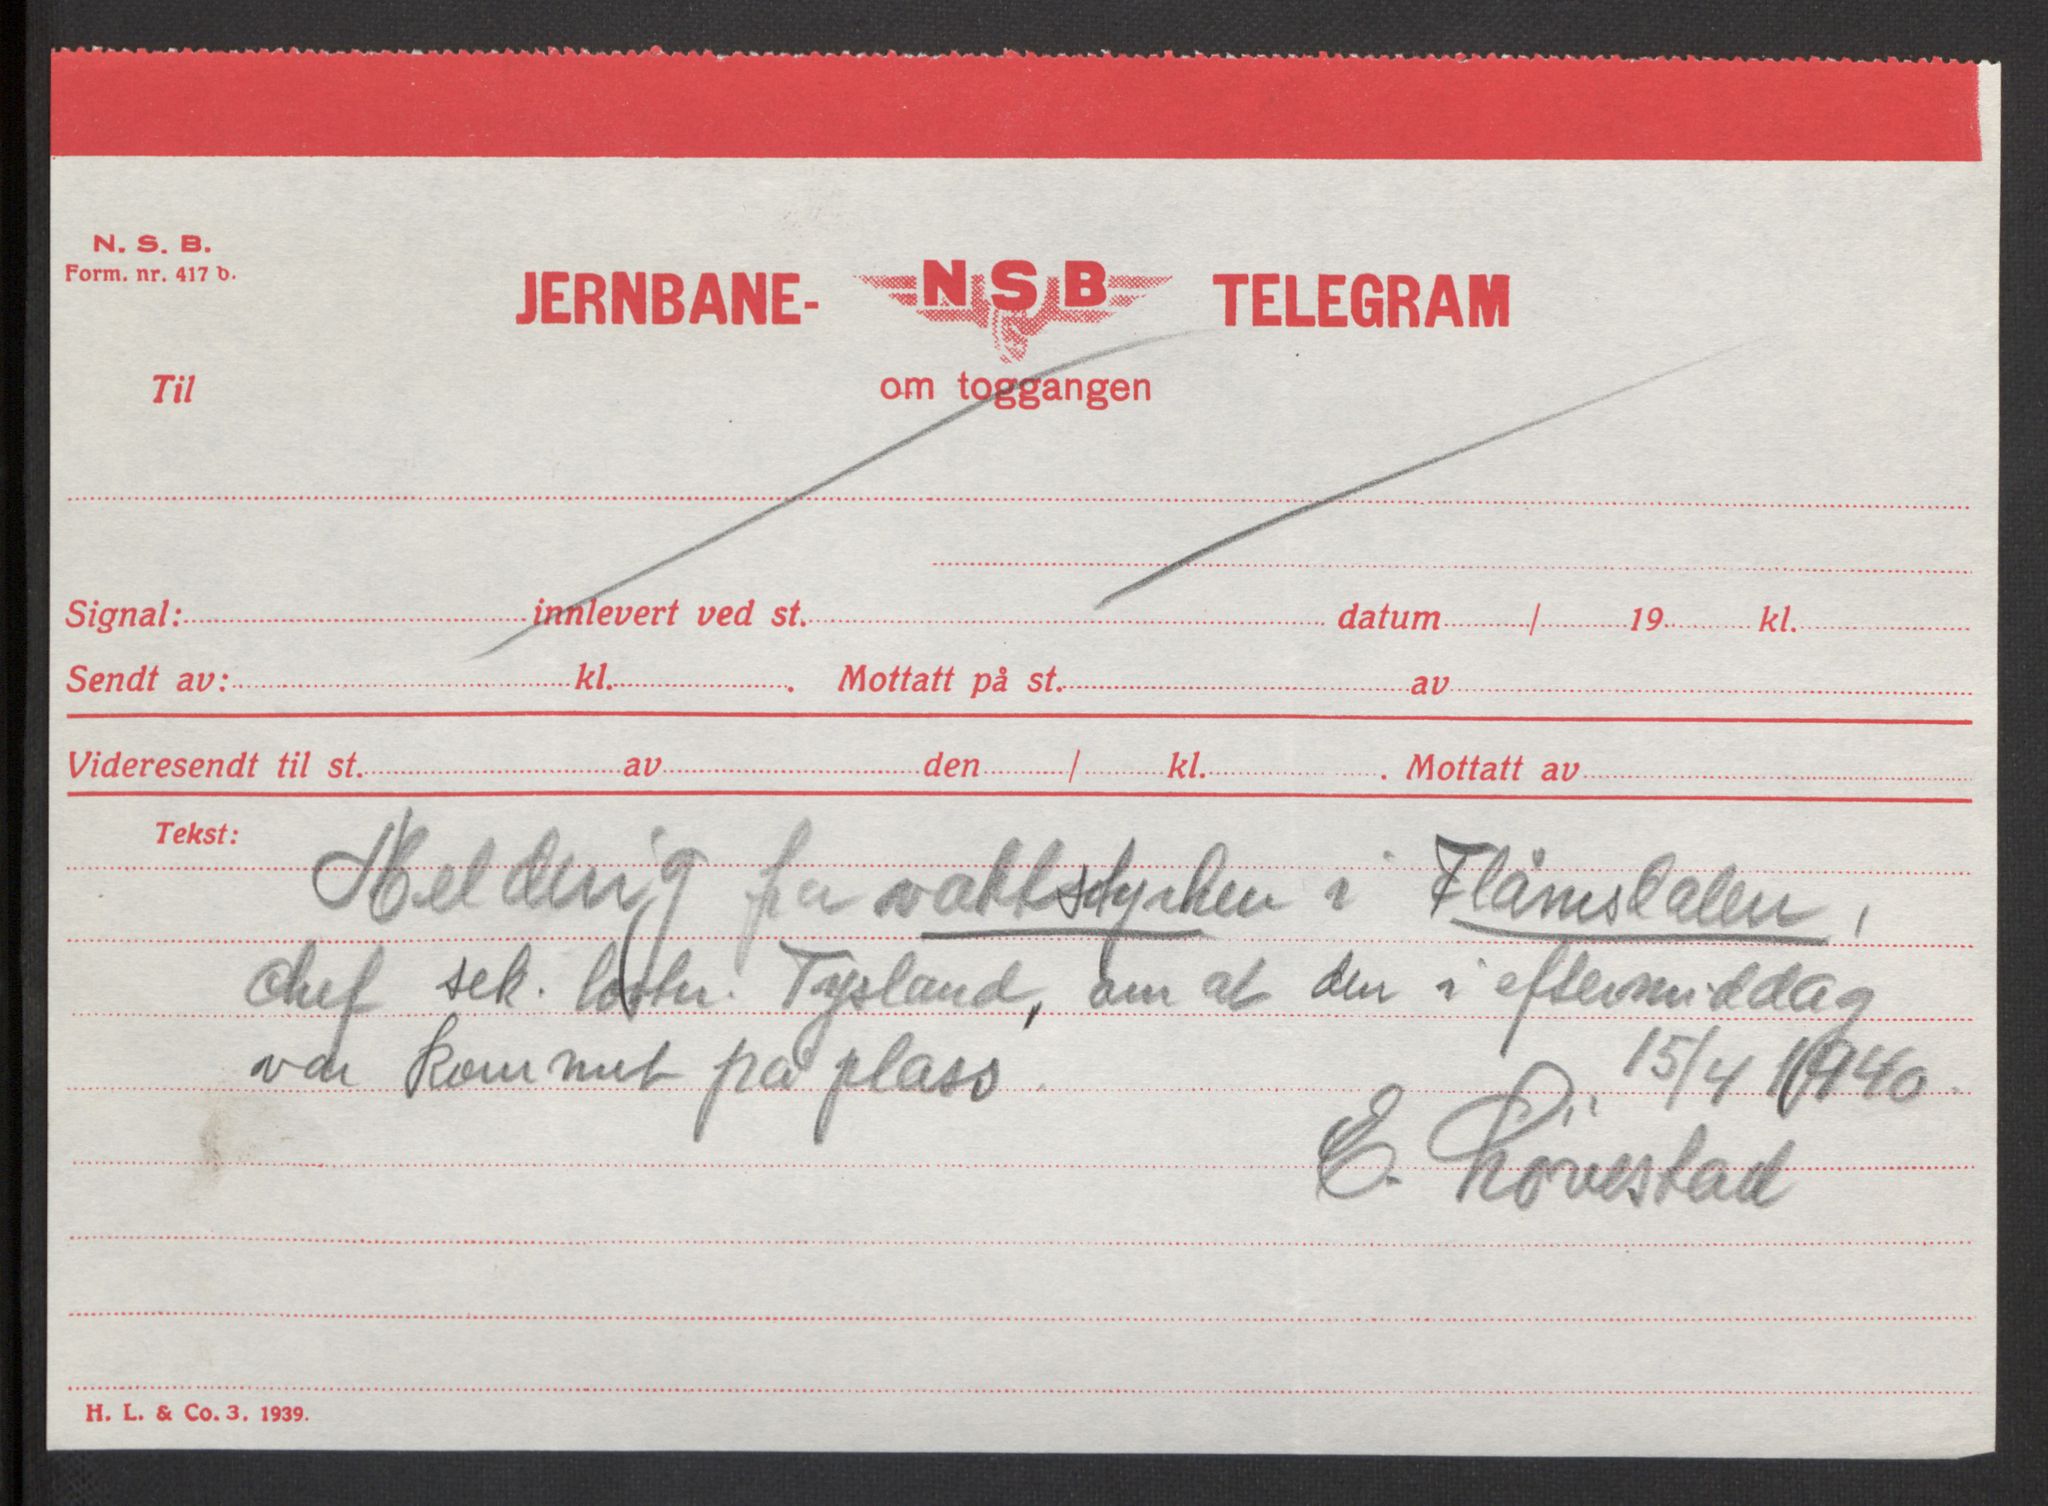 N. S. B.
Form. nr. 417 b.
JERNBANE- NSB TELEGRAM
Til om toggangen
Signal: innlevert ved st. datum / 19 kl.
Sendt av: kl. . Mottatt på st. av
Videresendt til st. av den / kl. . Mottatt av
Tekst:
Melding fra vaktstyrken i Flåmsdalen,
chef sek. løitn. Tysland, om at den i eftermiddag
var kommet på plass.
15/4 1940.
E. Løvestad
H. L. & Co. 3. 1939.